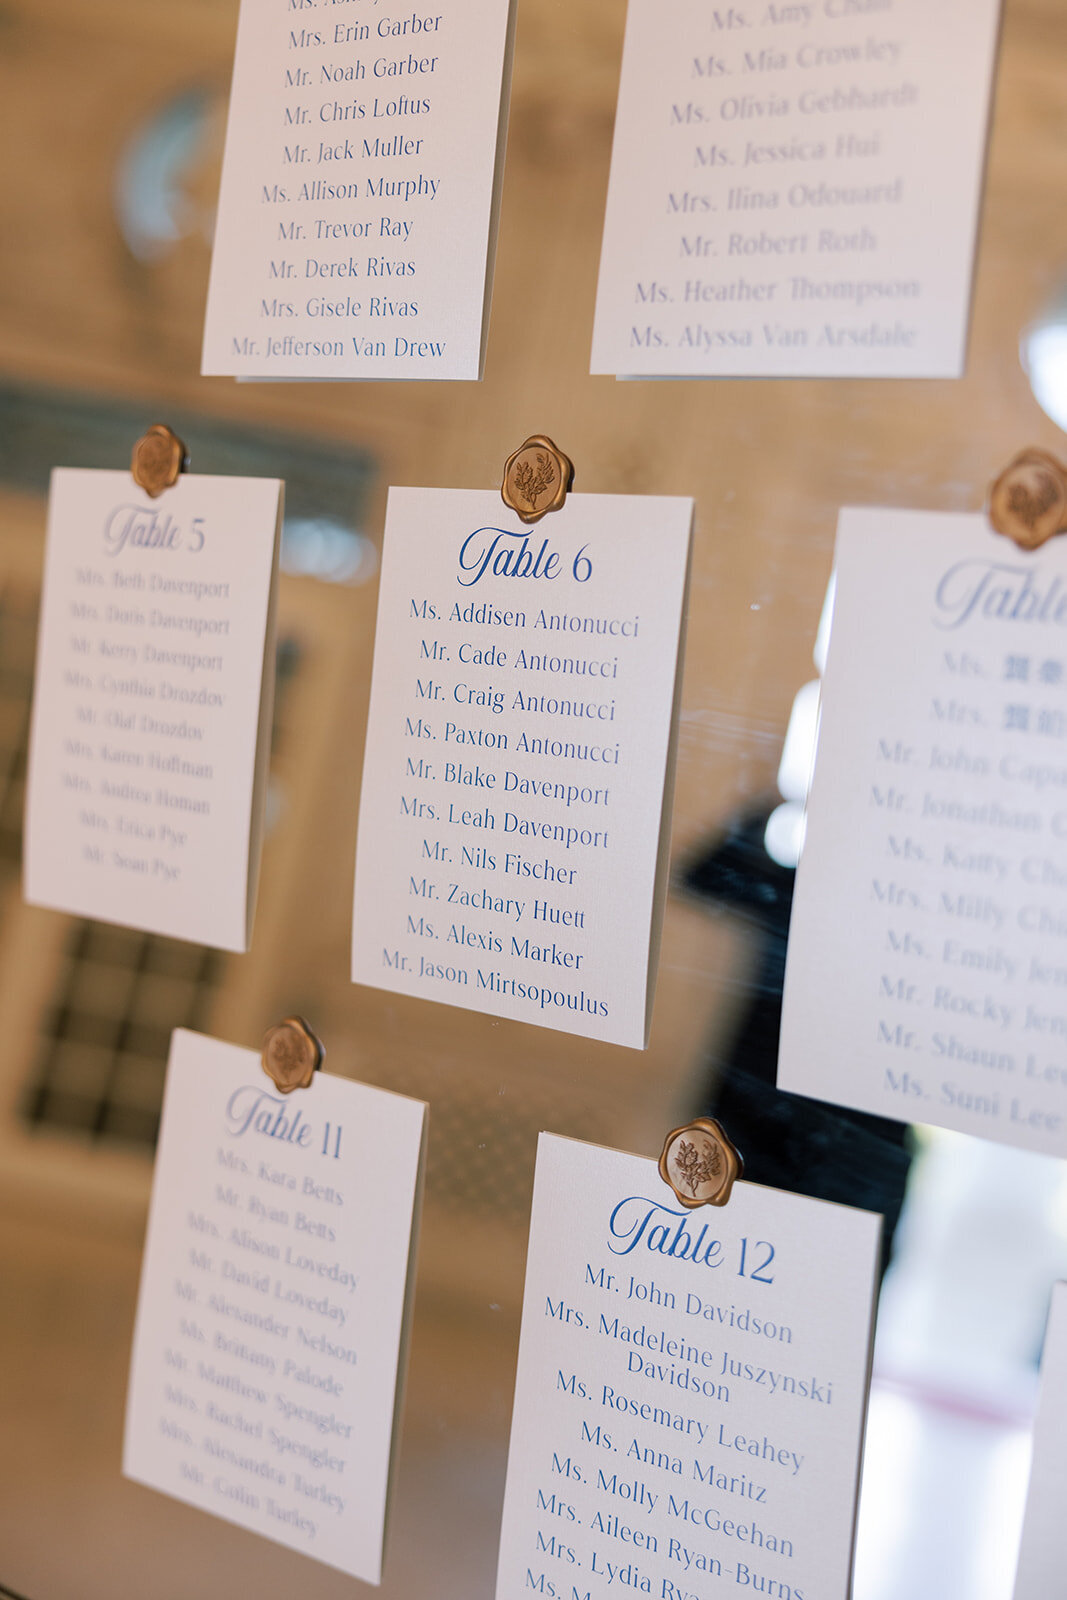 Mrs. Erin Garber
Mr. Noah Garber
Mr. Chris Loftus
Mr. Jack Muller
Ms. Allison Murphy
Mr. Trevor Ray
Mr. Derek Rivas
Mrs. Gisele Rivas
Mr. Jefferson Van Drew
Ms. Amy
Ms. Mia Crowley
Ms. Olivia Gebhardt
Ms. Jessica Hui
Mrs. Ilina Odouard
Mr. Robert Roth
Ms. Heather Thompson
Ms. Alyssa Van Arsdale
Table 5
Mrs. Beth Davenport
Mrs. Doris Davenport
Mr. Kerry Davenport
Mrs. Cynthia Drozdov
Mr. Olaf Drozdov
Mrs. Karen Hoffman
Mrs. Andrea Homan
Mrs. Erica Pye
Mr. Sean Pye
Table 6
Ms. Addisen Antonucci
Mr. Cade Antonucci
Mr. Craig Antonucci
Ms. Paxton Antonucci
Mr. Blake Davenport
Mrs. Leah Davenport
Mr. Nils Fischer
Mr. Zachary Huett
Ms. Alexis Marker
Mr. Jason Mirtsopoulus
Table
Ms.
Mrs.
Mr. John
Mr. Jonathan
Ms. Katty
Mrs. Milly
Ms. Emily
Mr. Rocky
Mr. Shaun
Ms. Suni Lee
Table 11
Mrs. Kara Betts
Mr. Ryan Betts
Mrs. Alison Loveday
Mr. David Loveday
Mr. Alexander Nelson
Ms. Brittany Palode
Mr. Matthew Spengler
Mrs. Rachel Spengler
Mrs. Alexandra Turley
Mr. Colin Turley
Table 12
Mr. John Davidson
Mrs. Madeleine Juszynski
Davidson
Ms. Rosemary Leahey
Ms. Anna Maritz
Ms. Molly McGeehan
Mrs. Aileen Ryan-Burns
Mrs. Lydia
Ms.